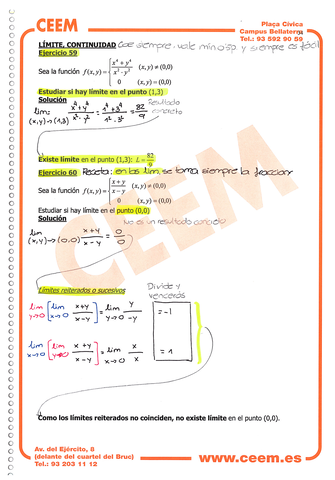 CEEM
Plaça Cívica
Campus Bellaterra
Tel.: 93 592 90 59
LÍMITE. CONTINUIDAD Cae siempre: vale mínimo 5p y siempre es fácil
Ejercicio 59
Sea la función f(x,y) = { x⁴ + y⁴ / x² · y² (x,y) ≠ (0,0)
0 (x,y) = (0,0)
Estudiar si hay límite en el punto (1,3)
Solución
lim: (x,y)→(1,3) x⁴+y⁴ / x²·y² = 1⁴+3⁴ / 1²·3² = 82/9 Resultado concreto
Existe límite en el punto (1,3): L = 82/9
Ejercicio 60 Receta: en los lím. se toma siempre la fracción
Sea la función f(x,y) = { x + y / x − y (x,y) ≠ (0,0)
0 (x,y) = (0,0)
Estudiar si hay límite en el punto (0,0)
Solución No es un resultado concreto
lim (x,y)→(0,0) x+y / x−y = 0/0
Límites reiterados o sucesivos Divide y vencerás
lim y→0 [lim x→0 x+y / x−y] = lim y→0 y / −y = −1
lim x→0 [lim y→0 x+y / x−y] = lim x→0 x / x = 1
Como los límites reiterados no coinciden, no existe límite en el punto (0,0).
CEEM
Av. del Ejército, 8
(delante del cuartel del Bruc)
Tel.: 93 203 11 12
www.ceem.es